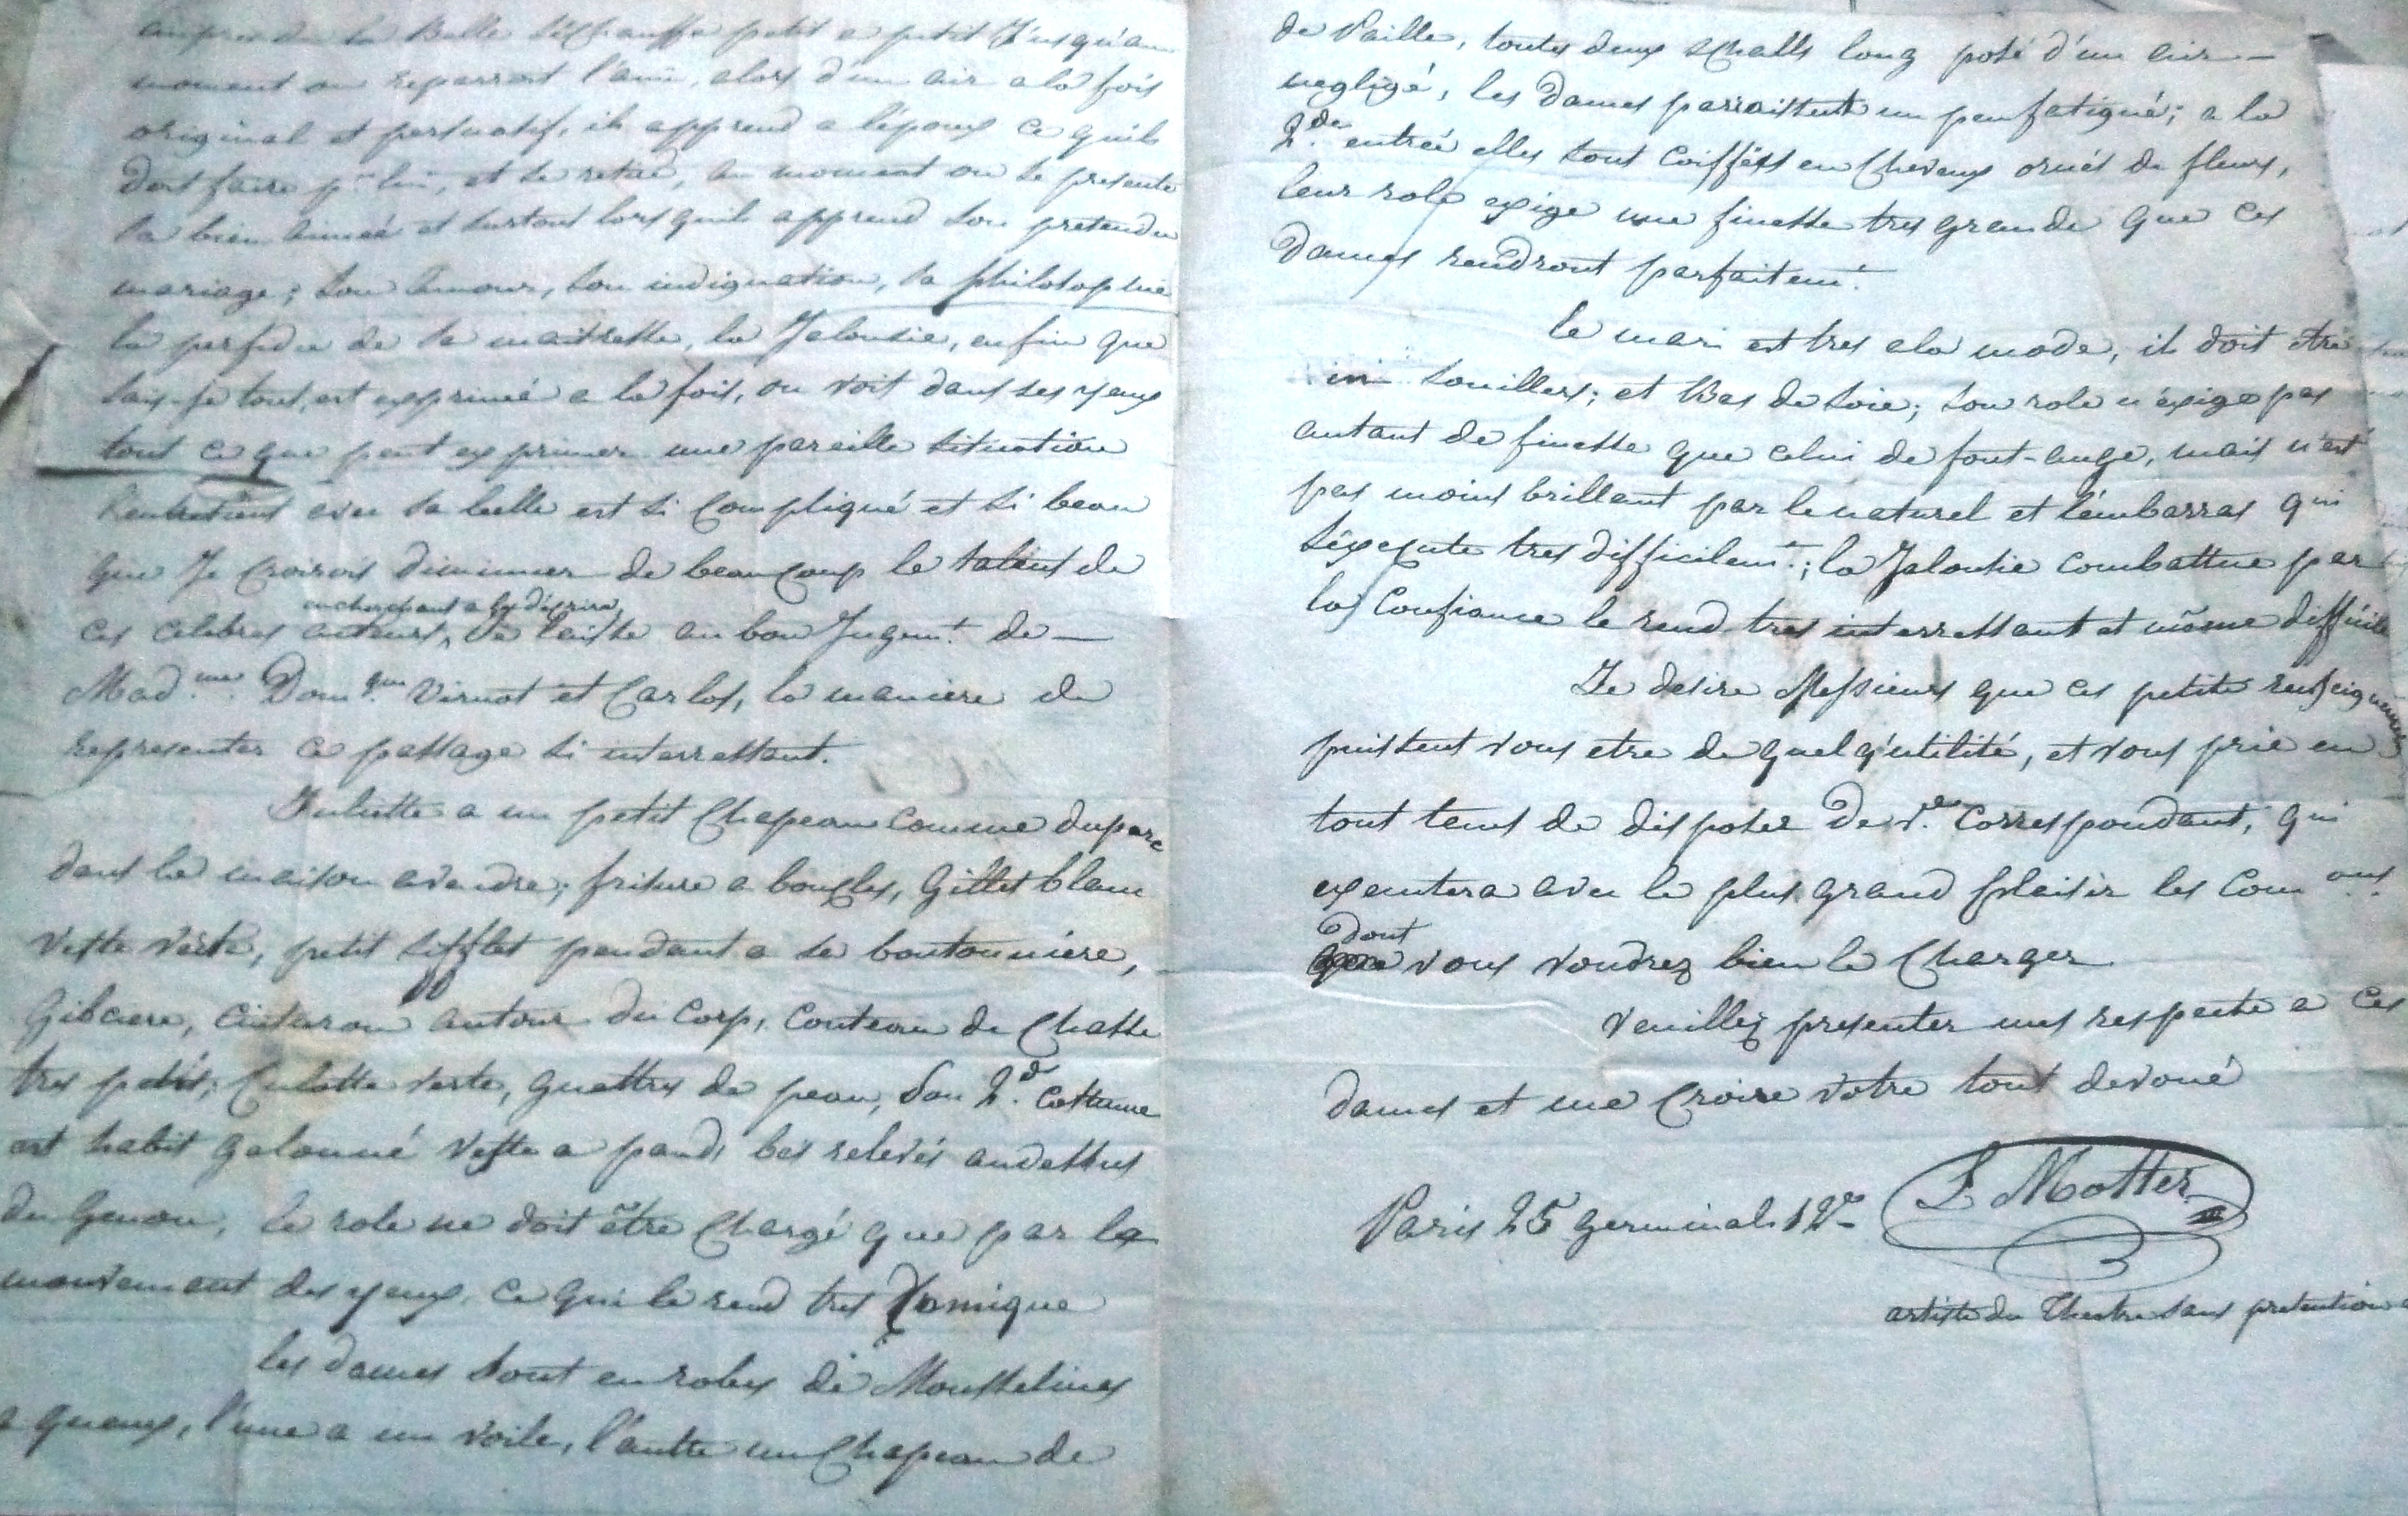 auprès de la Belle s'échauffe petit a petit Jusqu'au
moment ou reparroit l'ami, alors d'un air a la fois
original et persuasif, il apprend a l'époux ce quil
doit faire pr. lui, et se retire, au moment ou se presente
sa bien aimée et surtout lors quil apprend son pretendu
mariage; son amour, son indignation, sa philosophie
la perfidie de sa maitresse, la Jalousie, enfin que
sais-je tout, est exprimé a la fois, on voit dans ses yeux
tout ce que peut exprimer une pareille situation
l'entretient avec sa belle est si compliqué et si beau
que Je croirois diminuer de beaucoup le talent de
en cherchant a les décrire,
ces celebres auteurs, Je laisse au bon Jugemt. de —
Madme. Domque. Virnot et Carlos, la maniere de
representer ce passage si interressant.
Juliette a un petit chapeau comme duparc
dans la maison a vendre; frisure a boucles, Gillet blanc
veste verte, petit sifflet pendant a sa boutonniere,
Gibciere, ceinturon autour du corp, couteau de chasse
tres petit; Culotte verte, guettres de peau, son 2d. costume
est habit galonné veste a pands bas relevés audessus
du genou, le role ne doit être chargé que par le
mouvement des yeux. ce qui le rend tres Comique
les dames sont en robes de Mousselines
a queues, l'une a un voile, l'autre un chapeau de
de Paille, toutes deux schalls long posé d'un air —
negligé, les dames parroissent un peu fatigué; a la
2.de entrée elles sont coiffées en cheveux ornés de fleurs,
leur role exige une finesse tres grande que ces
Dames rendront parfaitemt.
le mari est tres a la mode, il doit etre
en souillers; et Bas de soie; son role n'exige pas
autant de finesse que celui de font-ange, mais n'est
pas moins brillant par le naturel et l'embarras qui
s'éxecute tres difficilemt.; la Jalousie combattue par
la confiance le rend tres interressant et même difficile
Je desire Messieurs que ces petits renseignements
puissent vous etre de quelq'utilité, et vous prie en
tout tems de disposer De v.e correspondant, qui
executera avec le plus grand plaisir les Com.ons
dont
que vous voudrez bien le charger.
veuillez presenter mes respects a ces
dames et me croire votre tout devoué
Paris 25 germinal 12e L Motter
artiste du Theatre sans pretention